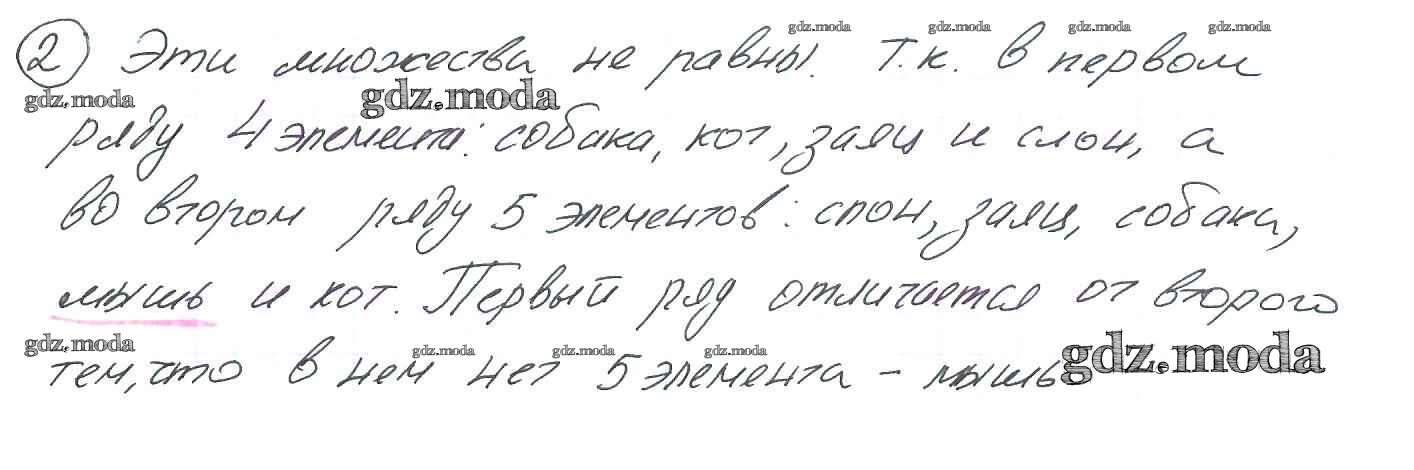 gdz.moda gdz.moda gdz.moda gdz.moda
2 Эти множества не равны. Т.к. в первом
gdz.moda gdz.moda
ряду 4 элемента: собака, кот, заяц и слон, а
во втором ряду 5 элементов: слон, заяц, собака,
мышь и кот. Первый ряд отличается от второго
gdz.moda gdz.moda gdz.moda gdz.moda gdz.moda
тем, что в нем нет 5 элемента - мышь